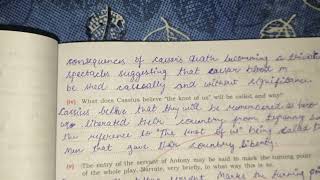 consequences of caesar's death becoming a
spectacles suggesting that caesar blood
be shed casually and without significance
(iv) What does Cassius believe "the knot of us" will be called and why?
Cassius believe that they will be remembered as
who liberated their country from tyranny
the reference to "The knot of us" being called
Men that gave their country liberty.
(v) (The entry of the servant of Antony may be said to mark the turning point
of the whole play. Narrate, very briefly, in what way this is so.
servant Marks the turning point